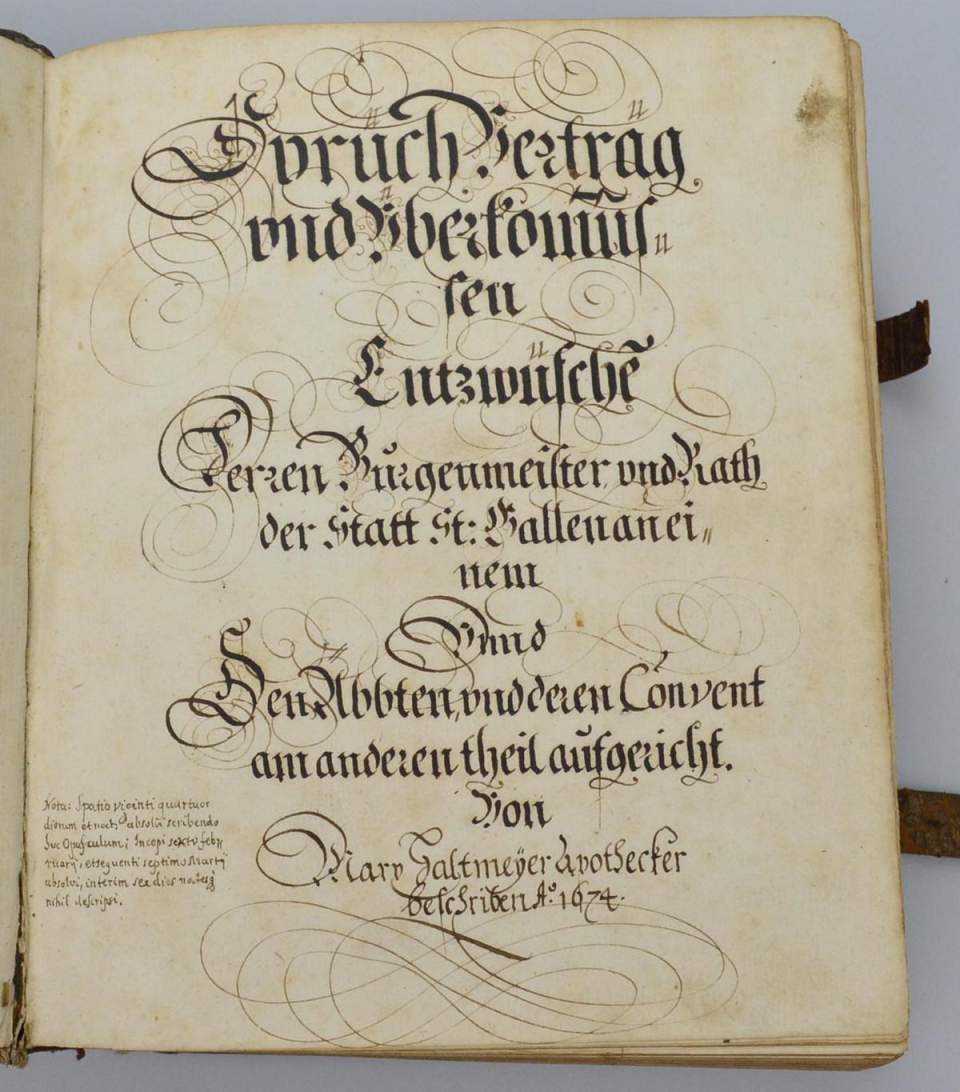 Sprüch Verträg
vnd Überkom̄nüs⸗
sen
Entzwüschē
Herren Burgenmeister vnd Rath
der Statt St: Gallen an ei⸗
nem
Vnnd
Den Äbbten, vnd deren Convent
am anderen theil aufgericht.
Von
Marx Haltmeÿer Apothecker
beschriben Aº. 1674.
Nota: Spatio viginti quartuor
dierum et noct: absolvi scribendo
hoc Opusculum; Incepi sexto febr
ruarÿ, et sequenti septimo Martÿ
absolvi, interim sex dies noctesq
nihil descripsi.